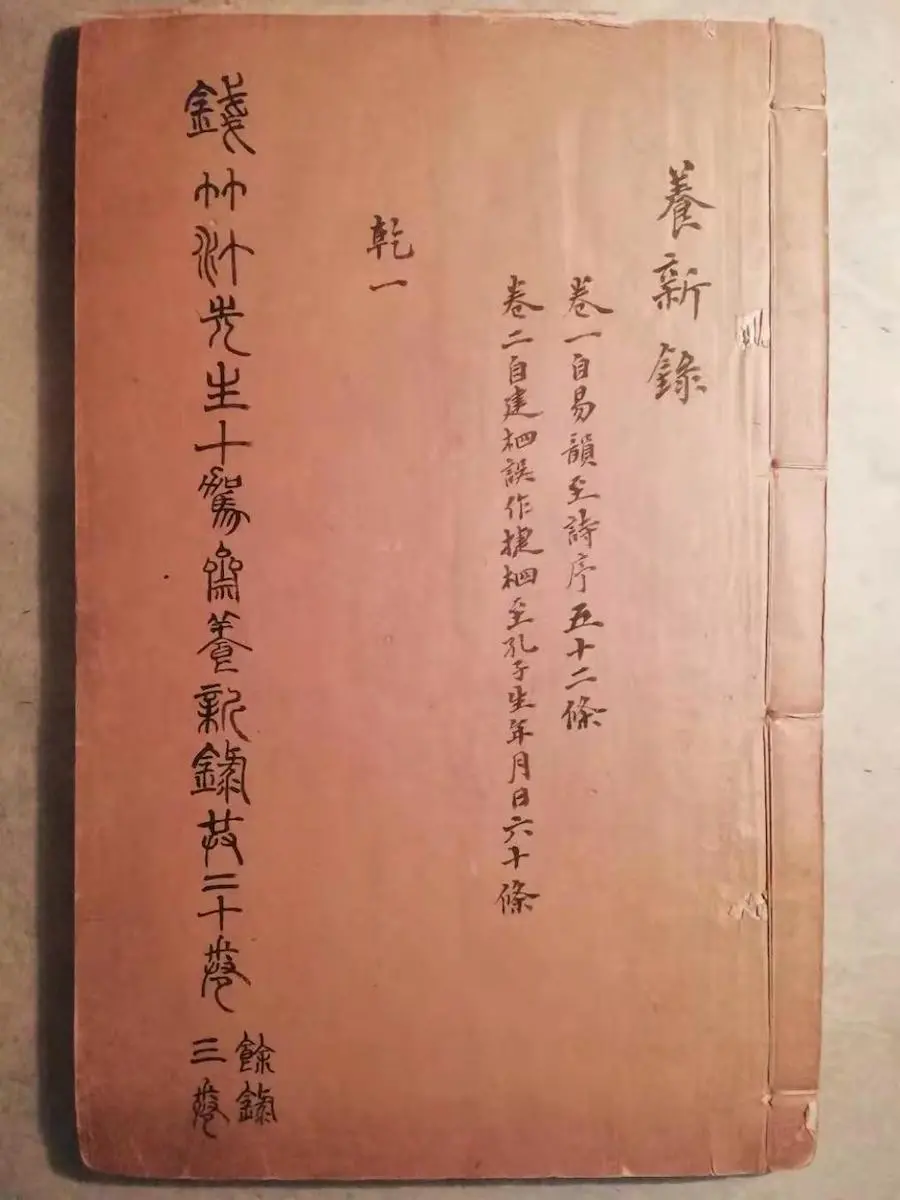 養新錄
卷一自易韻至詩序五十二條
卷二自建柶誤作捷柶至孔子生年月日六十條
乾一
錢竹汀先生十駕齋養新錄共二十卷
餘錄
三卷